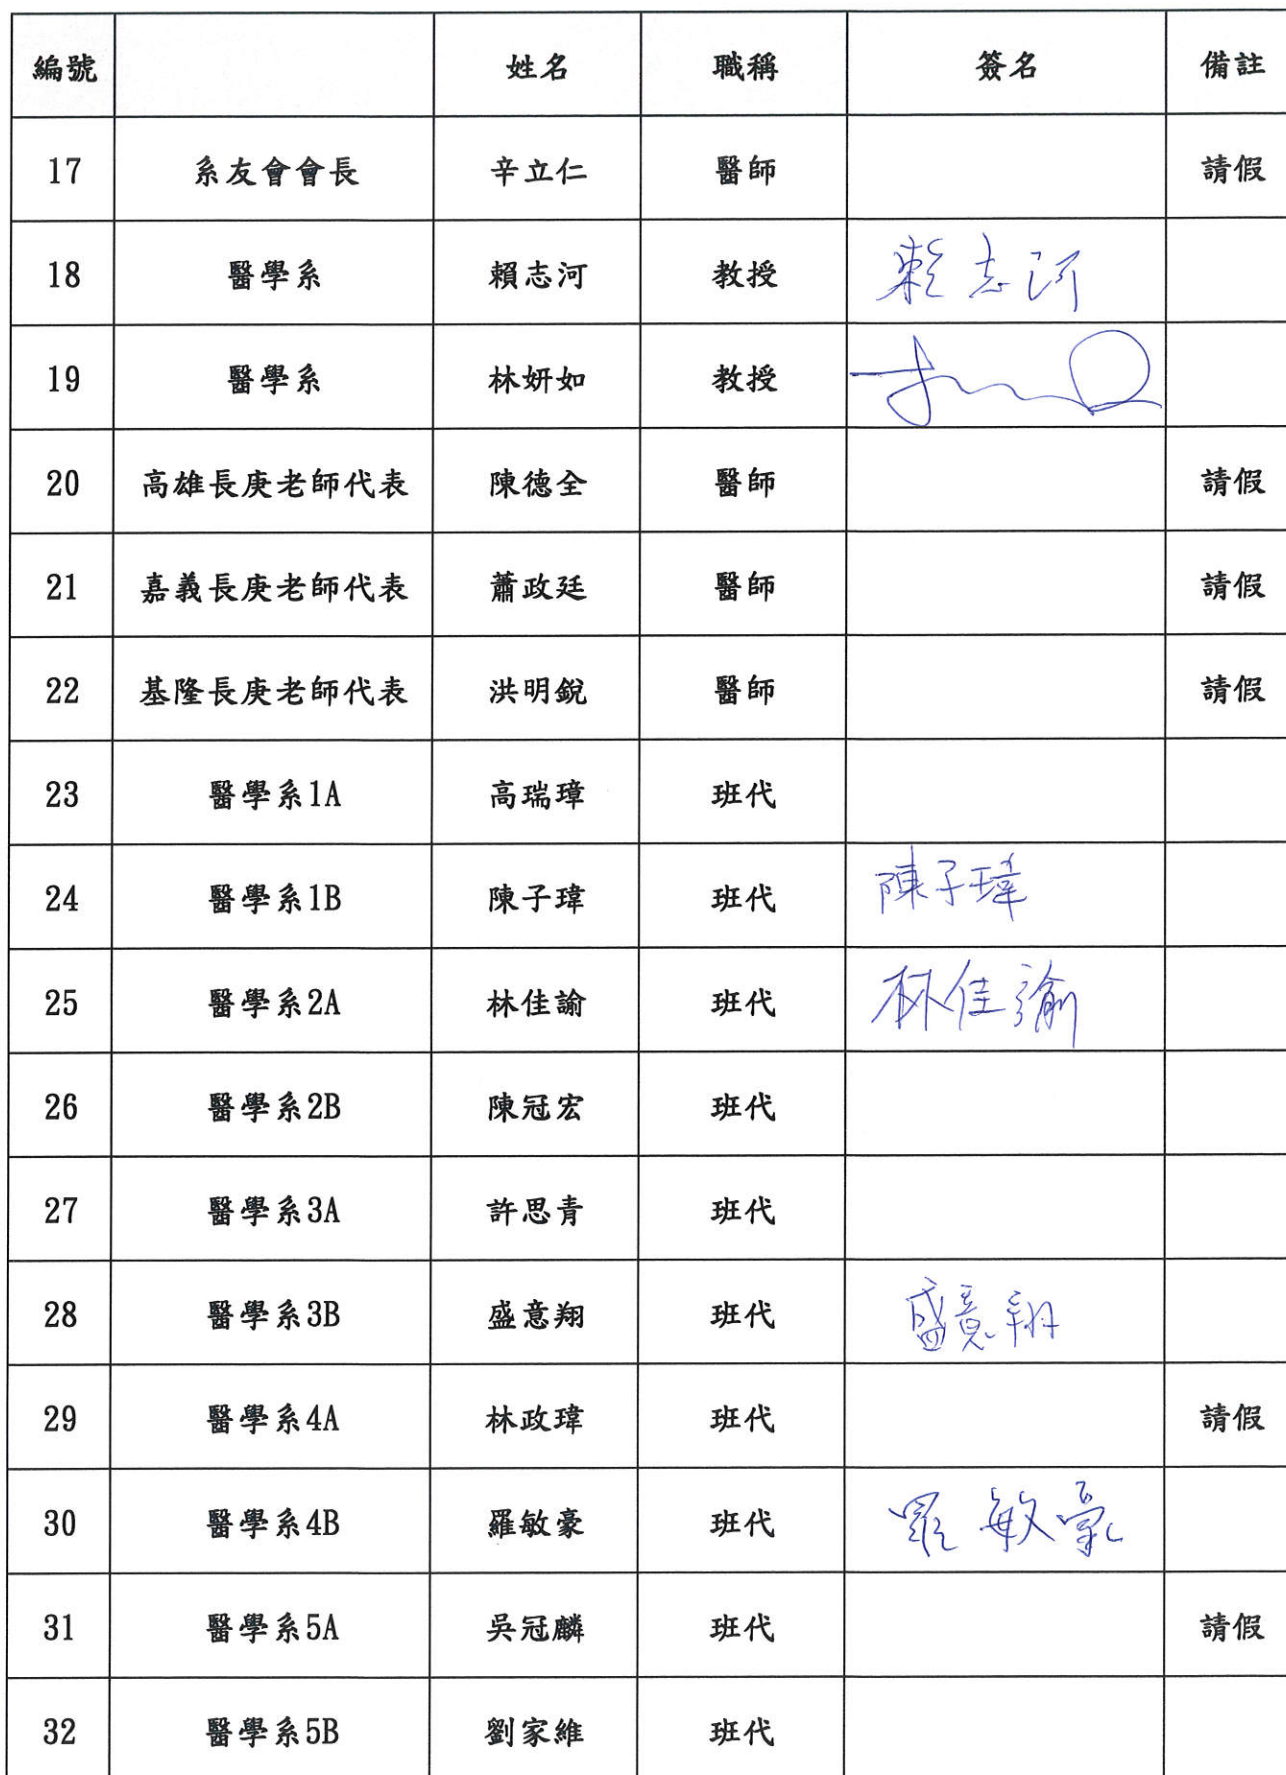 編號 姓名 職稱 簽名 備註
17 系友會會長 辛立仁 醫師 請假
18 醫學系 賴志河 教授 賴志河
19 醫學系 林妍如 教授
20 高雄長庚老師代表 陳德全 醫師 請假
21 嘉義長庚老師代表 蕭政廷 醫師 請假
22 基隆長庚老師代表 洪明銳 醫師 請假
23 醫學系1A 高瑞璋 班代
24 醫學系1B 陳子瑋 班代 陳子瑋
25 醫學系2A 林佳諭 班代 林佳諭
26 醫學系2B 陳冠宏 班代
27 醫學系3A 許思青 班代
28 醫學系3B 盛意翔 班代 盛意翔
29 醫學系4A 林政瑋 班代 請假
30 醫學系4B 羅敏豪 班代 羅敏豪
31 醫學系5A 吳冠麟 班代 請假
32 醫學系5B 劉家維 班代